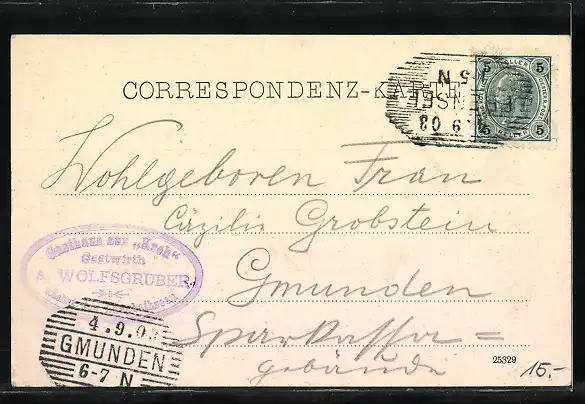 CORRESPONDENZ-KARTE
5 5
5 5
5 N
9 03
Wohlgeboren Frau
Cäzilie Grobstein
Gmunden
Sparkassa=
gebäude
Gasthaus zur „Kroh“
Gastwirth
A. WOLFSGRUBER
4.9.03
GMUNDEN
6-7 N
25329
15.-